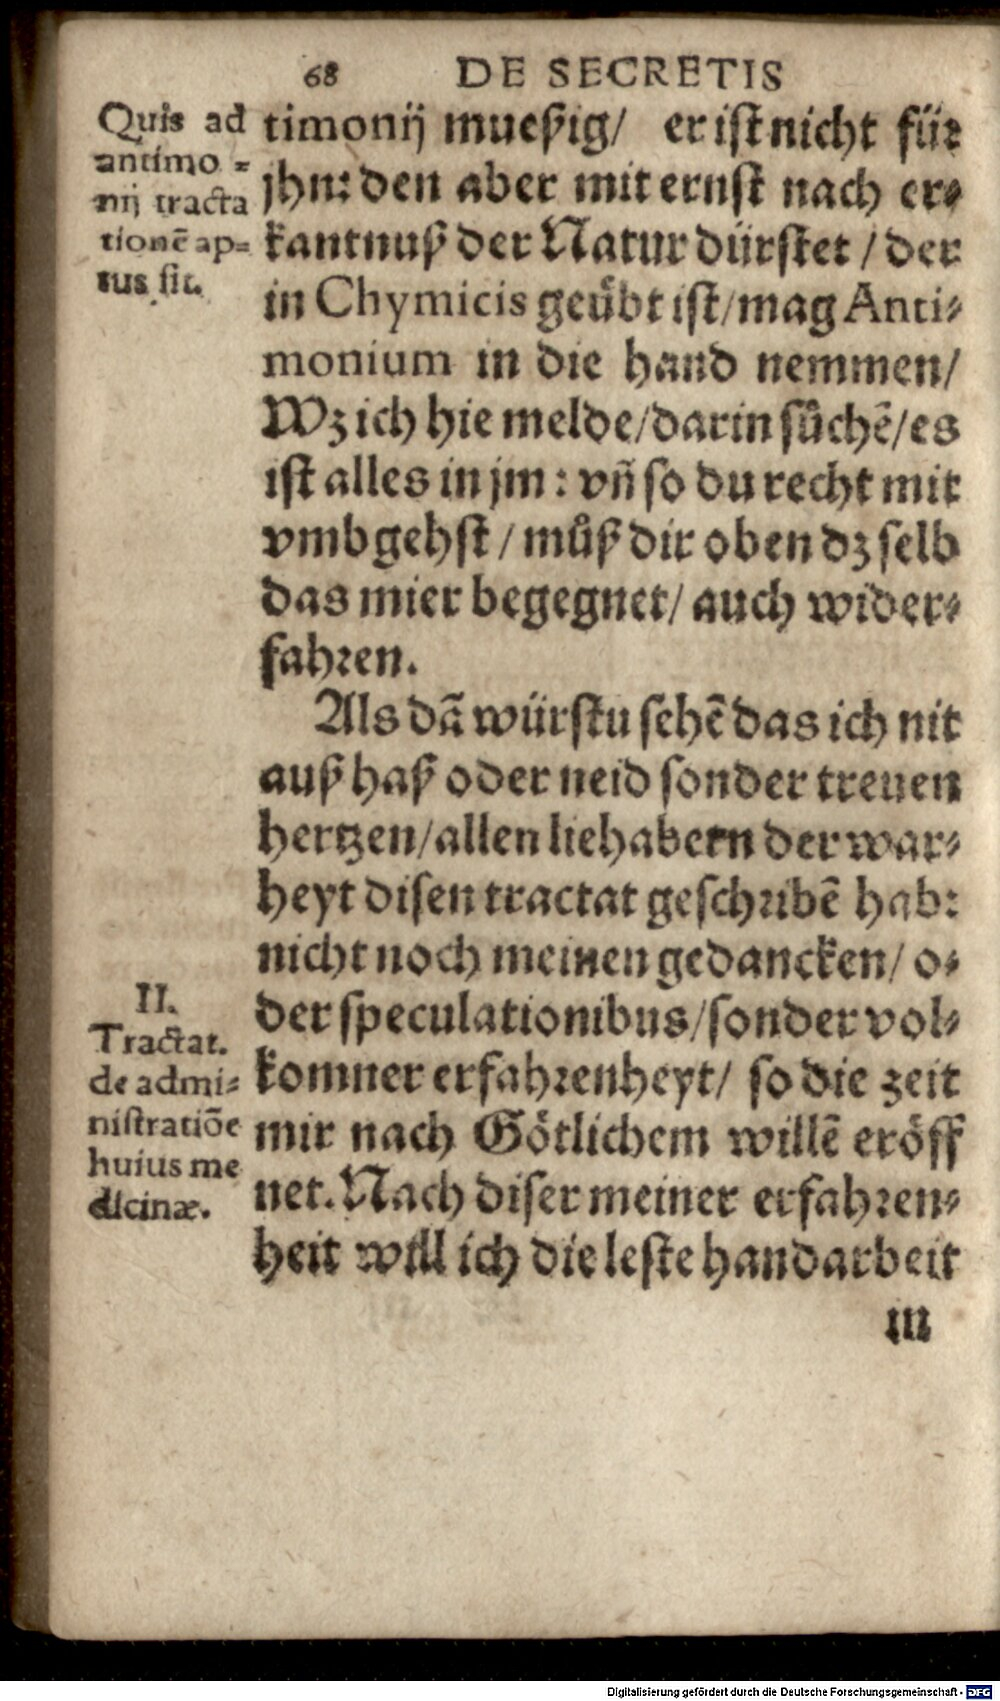 68 DE SECRETIS
Quis ad
antimo=
nij tracta
tionē ap=
tus sit.
timonij mueßig/ er ist nicht für
jhn: den aber mit ernst nach er=
kantnuß der Natur dürstet / der
in Chymicis geübt ist/mag Anti=
monium in die hand nemmen/
Wz ich hie melde/darin sůchē/es
ist alles in jm: vñ so du recht mit
vmbgehst / můß dir oben dz selb
das mier begegnet/ auch wider=
fahren.
Als dā würstu sehē das ich nit
auß haß oder neid sonder treuen
hertzen/allen liehabern der war=
heyt disen tractat geschribē hab:
nicht noch meinen gedancken/ o=
der speculationibus/sonder vol=
komner erfahrenheyt/ so die zeit
mir nach Götlichem willē eröff
net. Nach diser meiner erfahren=
heit will ich die leste handarbeit
in
II.
Tractat.
de admi=
nistratiōe
huius me
dicinæ.
Digitalisierung gefördert durch die Deutsche Forschungsgemeinschaft - DFG